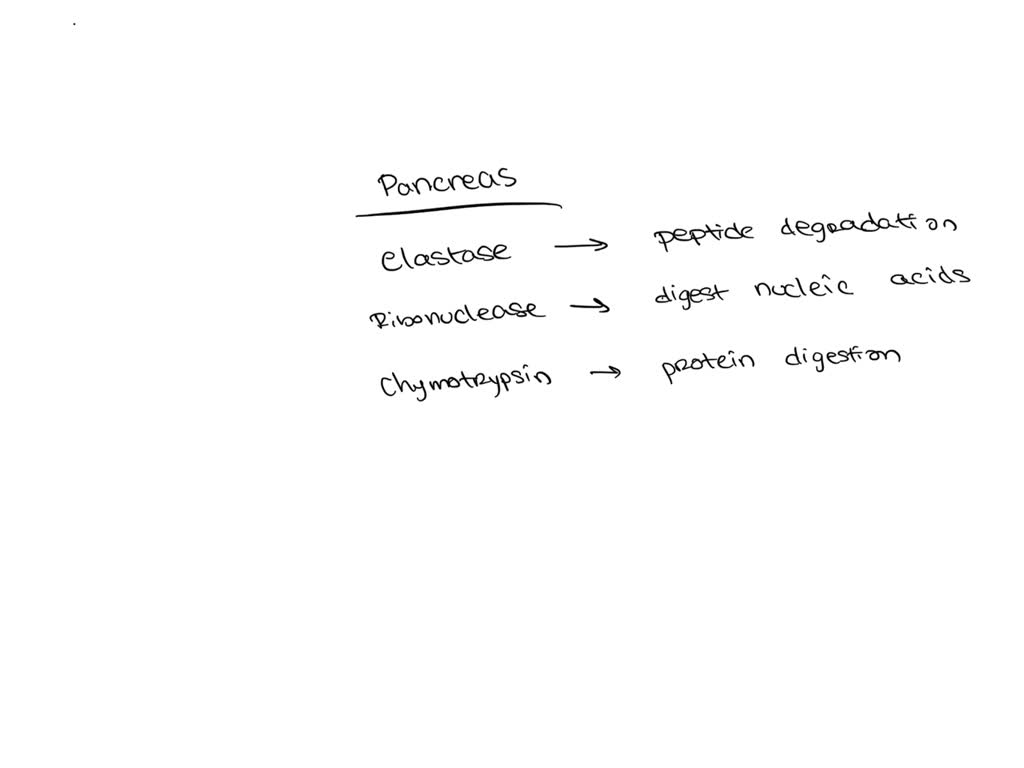 Pancreas
elastase → peptide degradation
Ribonuclease → digest nucleic acids
Chymotrypsin → protein digestion